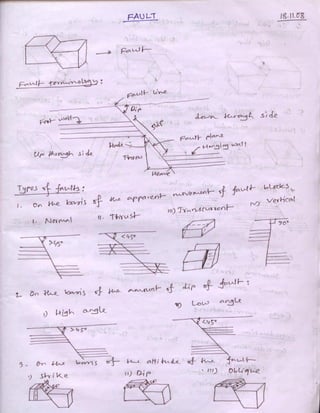 FAULT
18.11.08
Fault
Fault terminology:
Fault line
Dip
Foot wall
down through side
Fault plane
Hanging wall
Hade
Up through side
Throw
Heave
Types of faults:
1. On the basis of the apparent movement of fault blocks
i. Normal
ii. Thrust
iii) Transcurrent
iv) Vertical
>45°
<45°
90°
2. On the basis of the amount of dip of fault:
i) High angle
ii) Low angle
>45°
<45°
3. On the basis of the attitude of the fault
i) Strike
ii) Dip
iii) Oblique